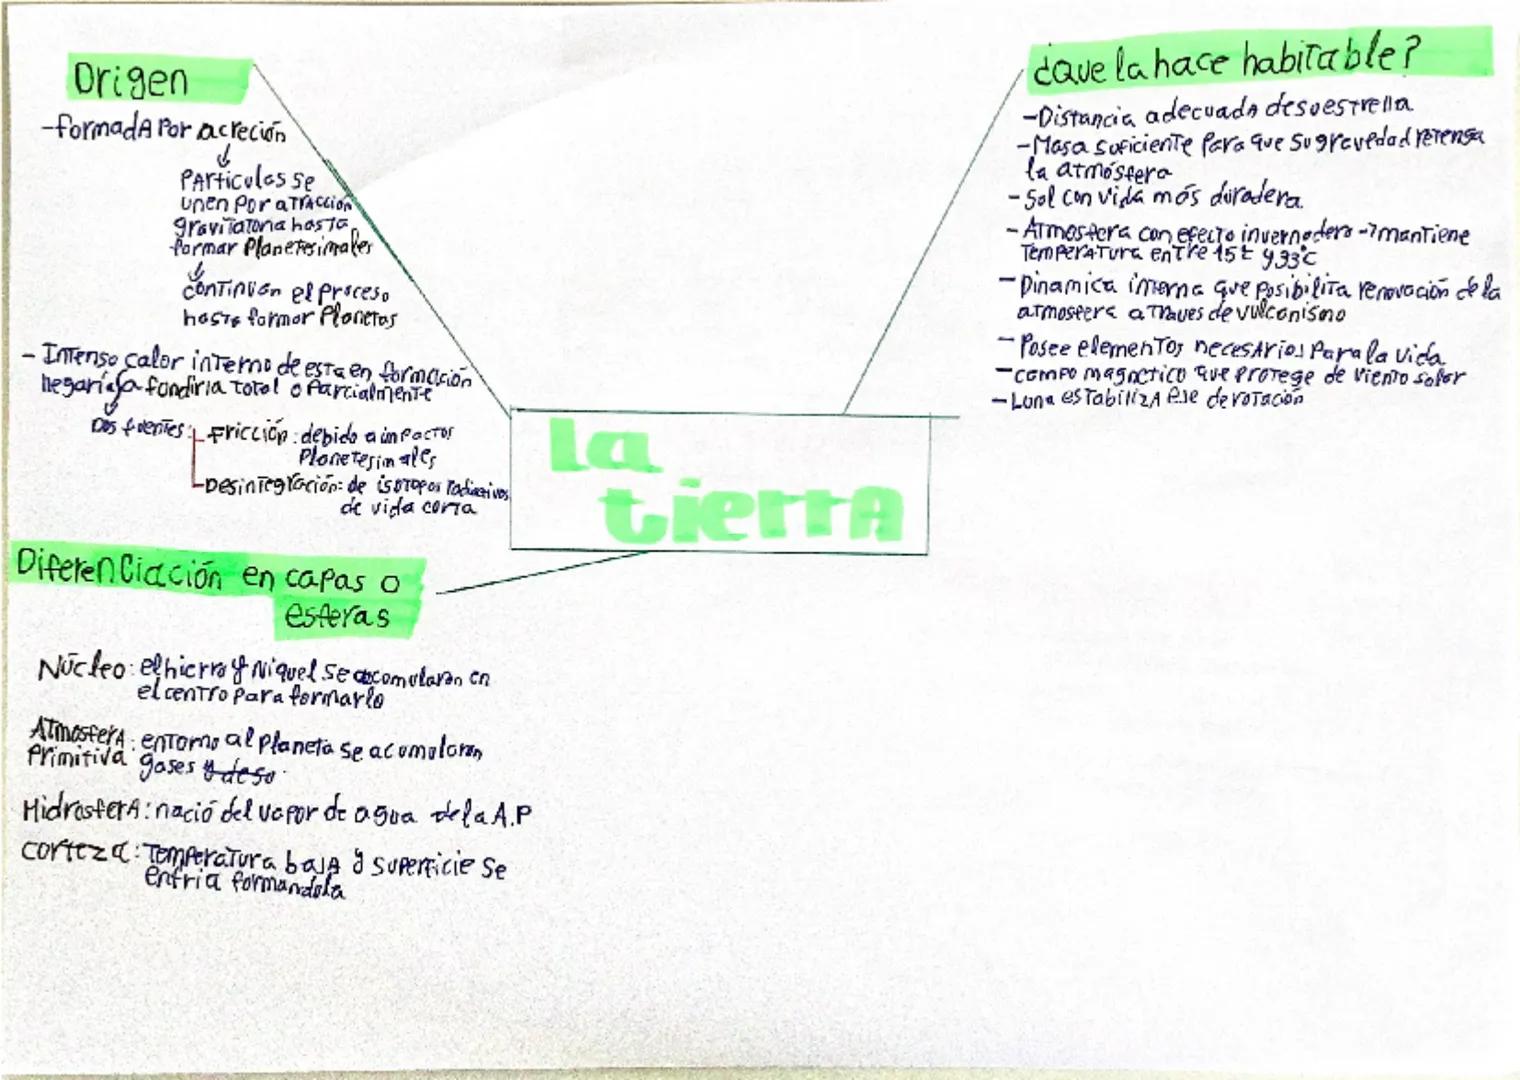 Origen
-formadA Por acreción
Particulas se
unen por aTracción
graviTaToria hasTa
formar PlaneTesimales
conTinúan el Proceso
hasTa formar PlaneTas
- InTenso calor inTerno de esTa en formación
llegaría fundiria ToTal o ParcialmenTe
Dos fuenTes:
Fricción: debido a impacTos
PlaneTesimales
-DesinTegración: de isóTopos radiacTivos
de vida corTa
Diferenciación en capas o
esferas
Núcleo: el hierro y Niquel se acomularon en
el cenTro para formarlo
ATmosferA
PrimiTiva : enTorno al PlaneTa se acomularon
gases y de so
HidrosferA: nació del vapor de agua de la A.P
CorTeza: TemperaTura bajA y superficie se
enfria formandola
La
TierrA
¿Que la hace habiTable?
-DisTancia adecuadA de su esTrella
-Masa suficienTe para que su gravedad reTenga
la aTmósfera
-Sol con vida más duradera
-ATmosfera con efecTo invernadero -> manTiene
TemperaTura enTre 15º y 33ºC
-Dinamica inTerna que posibiliTa renovación de la
aTmosfera a Traves de vulcanismo
-Posee elemenTos necesArios Para la vida
-campo magneTico que proTege de vienTo solar
-Luna esTabilizA eje de roTación